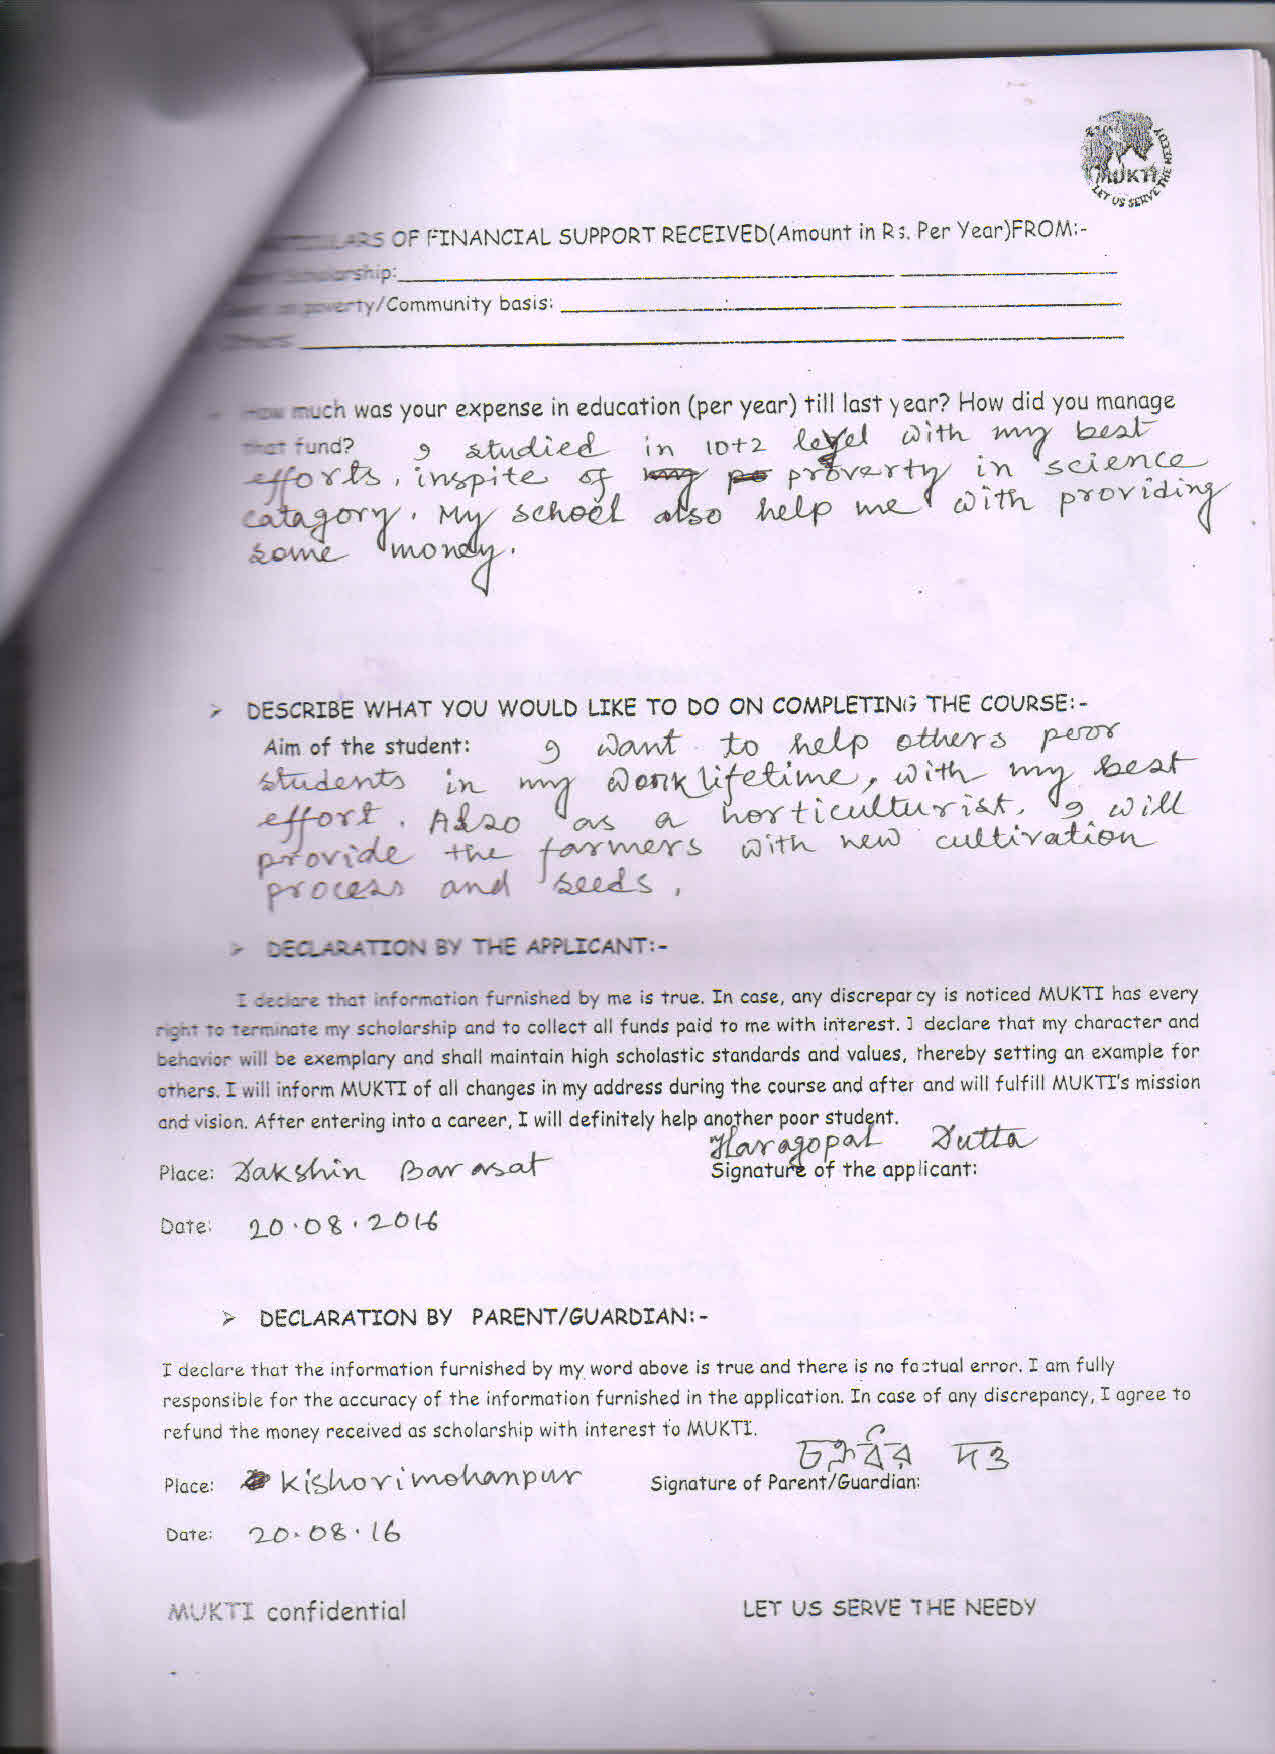 MUKTI
LET US SERVE THE NEEDY
OF FINANCIAL SUPPORT RECEIVED(Amount in Rs. Per Year)FROM:-
Scholarship:
poverty/Community basis:
Others:
How much was your expense in education (per year) till last year? How did you manage
that fund? I studied in 10+2 level with my best
efforts, inspite of my po proverty in science
catagory. My school also help me with providing
some money.
➢ DESCRIBE WHAT YOU WOULD LIKE TO DO ON COMPLETING THE COURSE:-
Aim of the student: I want to help others poor
students in my work lifetime, with my best
effort. Also as a horticulturist. I will
provide the farmers with new cultivation
process and seeds.
➢ DECLARATION BY THE APPLICANT:-
I declare that information furnished by me is true. In case, any discreparcy is noticed MUKTI has every
right to terminate my scholarship and to collect all funds paid to me with interest. I declare that my character and
behavior will be exemplary and shall maintain high scholastic standards and values, thereby setting an example for
others. I will inform MUKTI of all changes in my address during the course and after and will fulfill MUKTI's mission
and vision. After entering into a career, I will definitely help another poor student.
Haragopal Dutta
Place: Dakshin Barasat Signature of the applicant:
Date: 20.08.2016
➢ DECLARATION BY PARENT/GUARDIAN:-
I declare that the information furnished by my word above is true and there is no factual error. I am fully
responsible for the accuracy of the information furnished in the application. In case of any discrepancy, I agree to
refund the money received as scholarship with interest to MUKTI.
দত্ত
Place: Kishorimohanpur Signature of Parent/Guardian:
Date: 20.08.16
MUKTI confidential LET US SERVE THE NEEDY